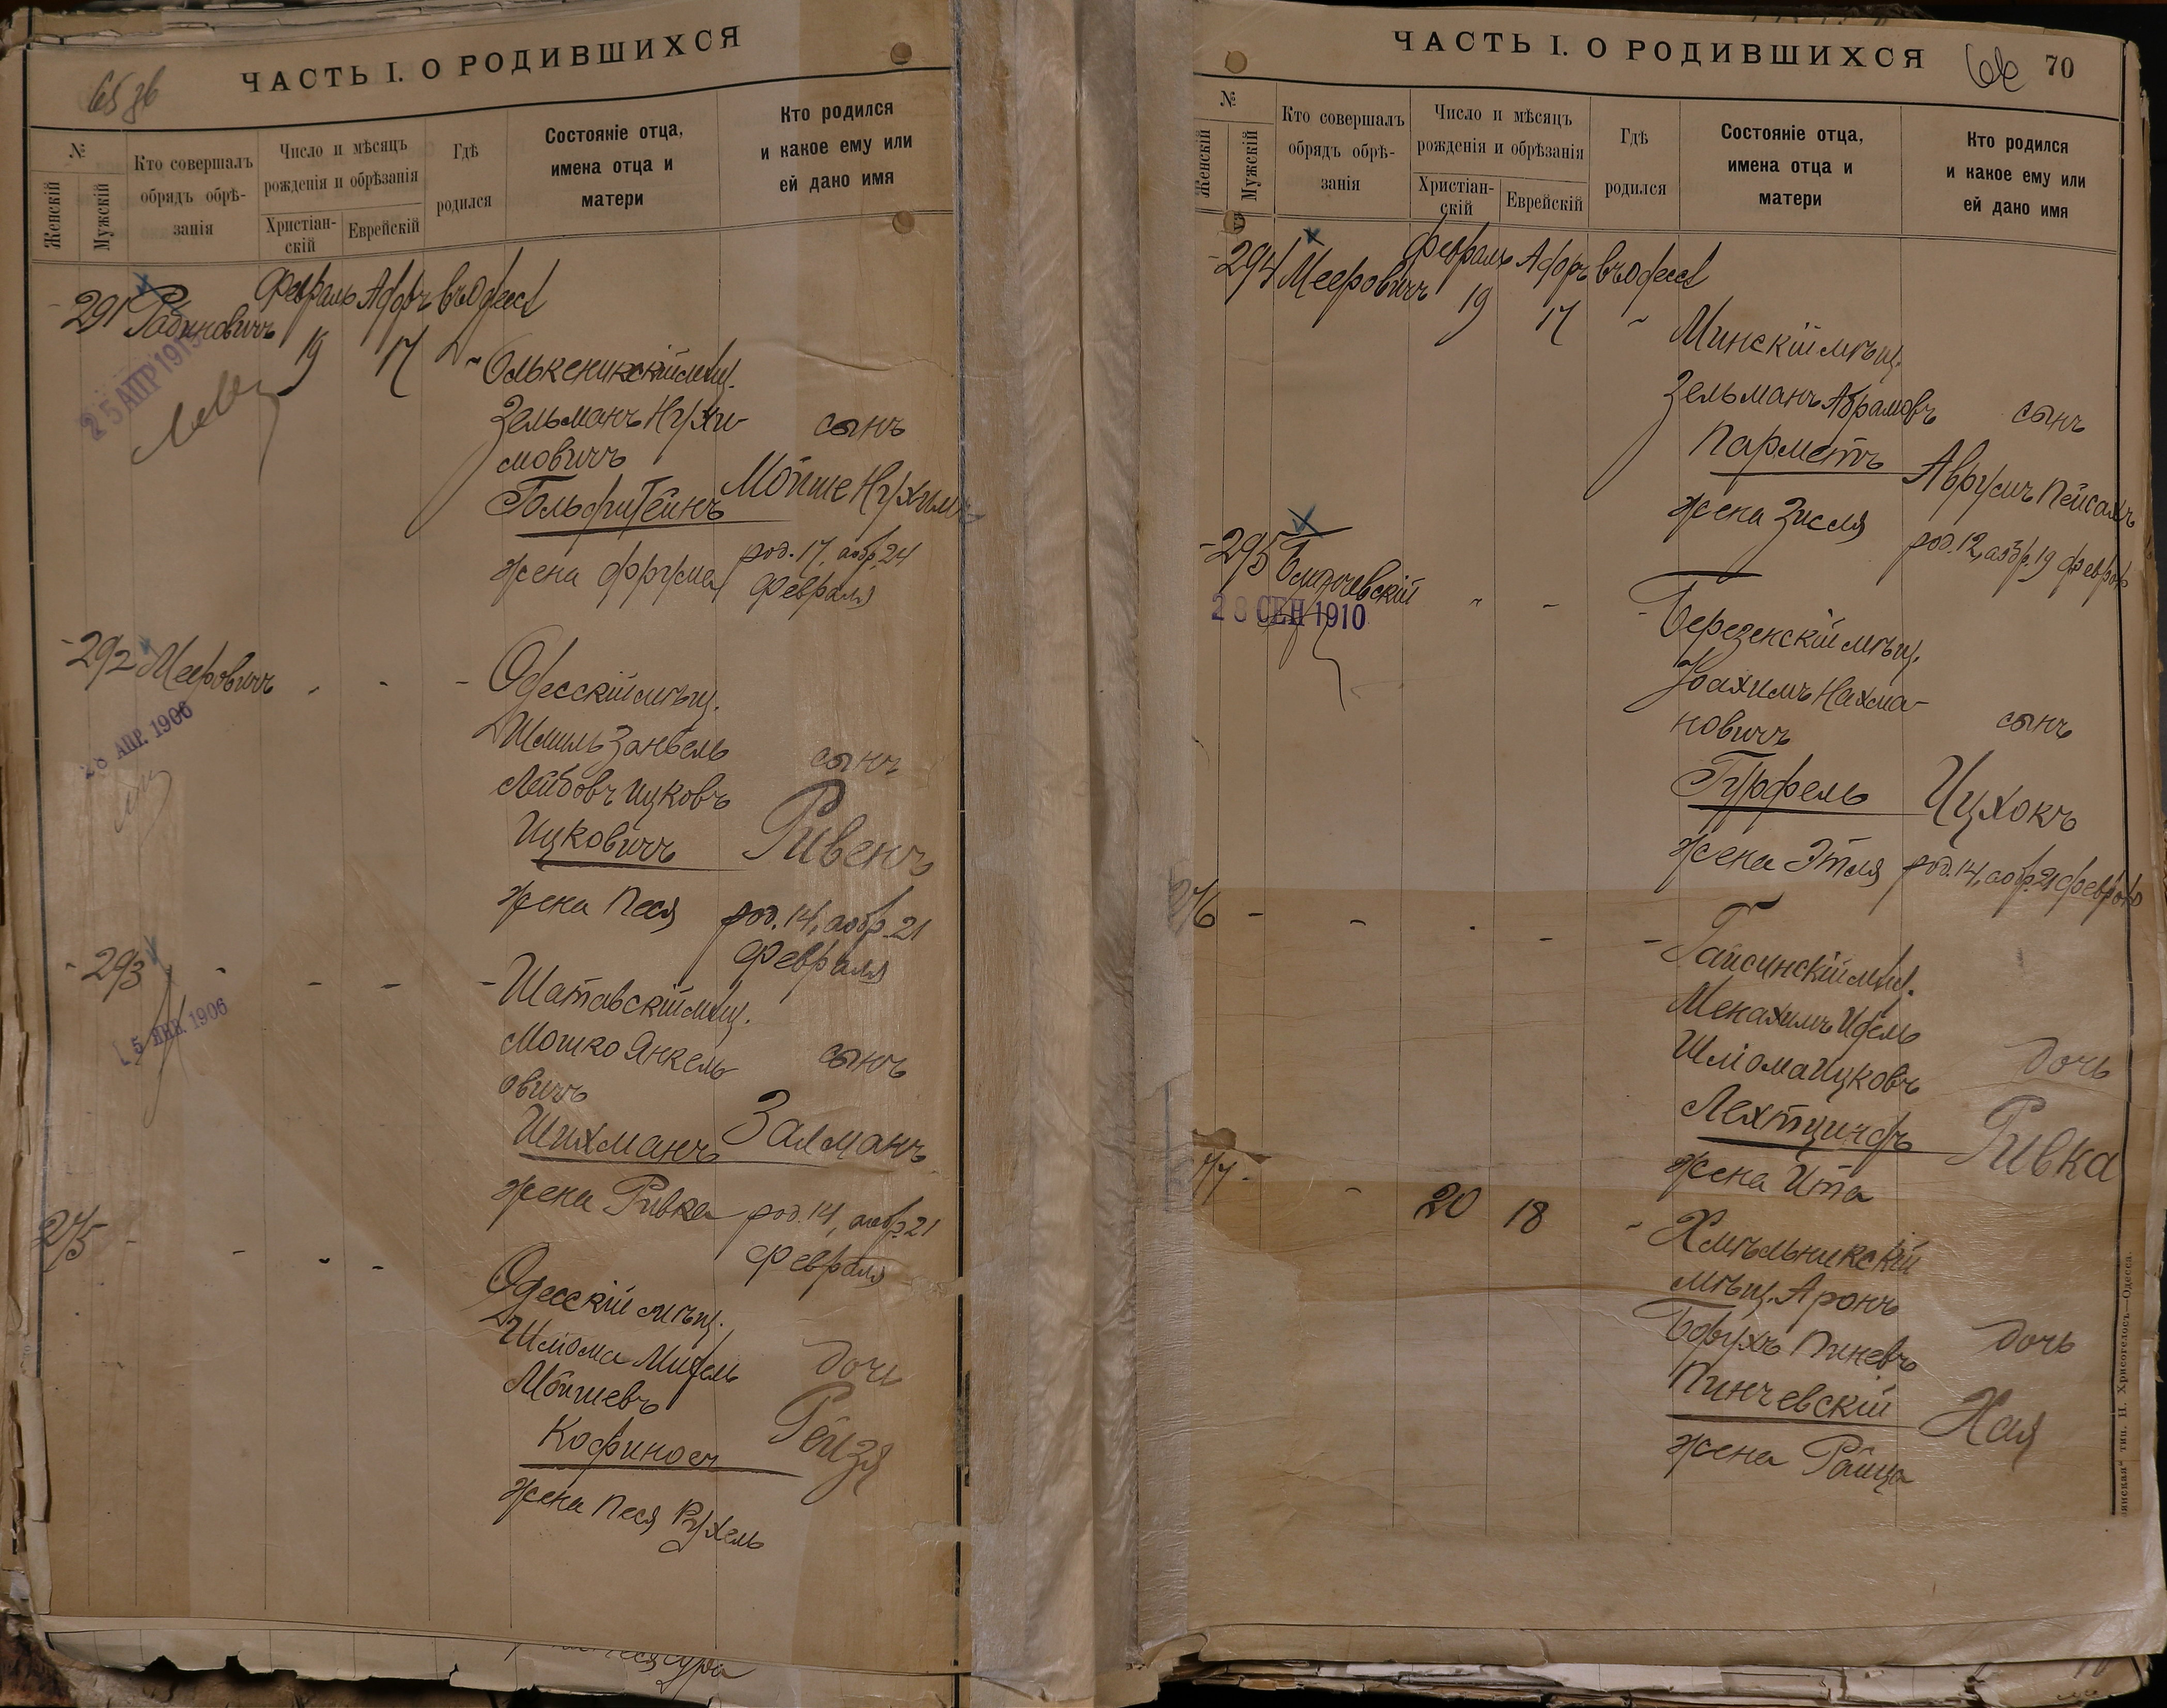 ЧАСТЬ I. О РОДИВШИХСЯ
№
Женскій
Мужскій
Кто совершалъ
обрядъ обрѣ-
занія
Число и мѣсяцъ
рожденія и обрѣзанія
Христіан-
скій
Еврейскій
Гдѣ
родился
Состояніе отца,
имена отца и
матери
Кто родился
и какое ему или
ей дано имя
291 Рабиновичъ
Февраль Адаръ въ Одессѣ
19 17
25 АПР 191
Олькеникскій мѣщ.
Зельманъ Нухи-
мовичъ
Гольдштейнъ
жена Фрума
сынъ
Мойше Нухимъ
род. 17, а обр. 24
Февраля
292 Мееровичъ
28 АПР. 1906
Одесскій мѣщ.
Шмиль Занвель
Лейбовъ Ицковъ
Ицковичъ
жена Песя
сынъ
Ривенъ
род. 14, а обр. 21
Февраля
293
5 ЯНВ. 1906
Шатавскій мѣщ.
Мошко Янкель
овичъ
Шихманъ
жена Ривка
сынъ
Залманъ
род. 14, а обр. 21
Февраля
275
Одесскій мѣщ.
Шлома Мидель
Мойшевъ
жена Песя Рухель
дочь
Рейзя
ЧАСТЬ I. О РОДИВШИХСЯ
70
№
Женскій
Мужскій
Кто совершалъ
обрядъ обрѣ-
занія
Число и мѣсяцъ
рожденія и обрѣзанія
Христіан-
скій
Еврейскій
Гдѣ
родился
Состояніе отца,
имена отца и
матери
Кто родился
и какое ему или
ей дано имя
294 Мееровичъ
Февраль Адаръ въ Одессѣ
19 17
Минскій мѣщ.
Зельманъ Абрамовъ
Парметъ
жена Зисля
сынъ
Аврумъ Пейсахъ
род. 12, а обр. 19 Февраля
295
28 СЕН 1910
Березенскій мѣщ.
Іоахимъ Нахма-
новичъ
Гурфель
жена Этля
сынъ
Ицхокъ
род. 14, а обр. 21 Февраля
276
Гайсинскій мѣщ.
Менахимъ Идель
Шліома Ицковъ
Лехтциндъ
жена Ита
дочь
Ривка
77
20 18
Хмѣльникскій
мѣщ. Аронъ
Борухъ Пиневъ
Пинчевскій
жена Райца
дочь
Хая
тип. Н. Хрисогелосъ—Одесса.